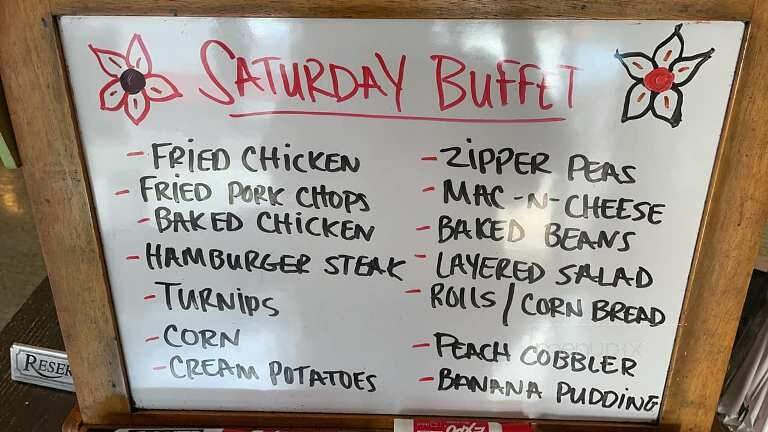 SATURDAY BUFFET
- FRIED CHICKEN
- FRIED PORK CHOPS
- BAKED CHICKEN
- HAMBURGER STEAK
- TURNIPS
- CORN
- CREAM POTATOES
- ZIPPER PEAS
- MAC-N-CHEESE
- BAKED BEANS
- LAYERED SALAD
- ROLLS / CORN BREAD
- PEACH COBBLER
- BANANA PUDDING
RESER
EXPO